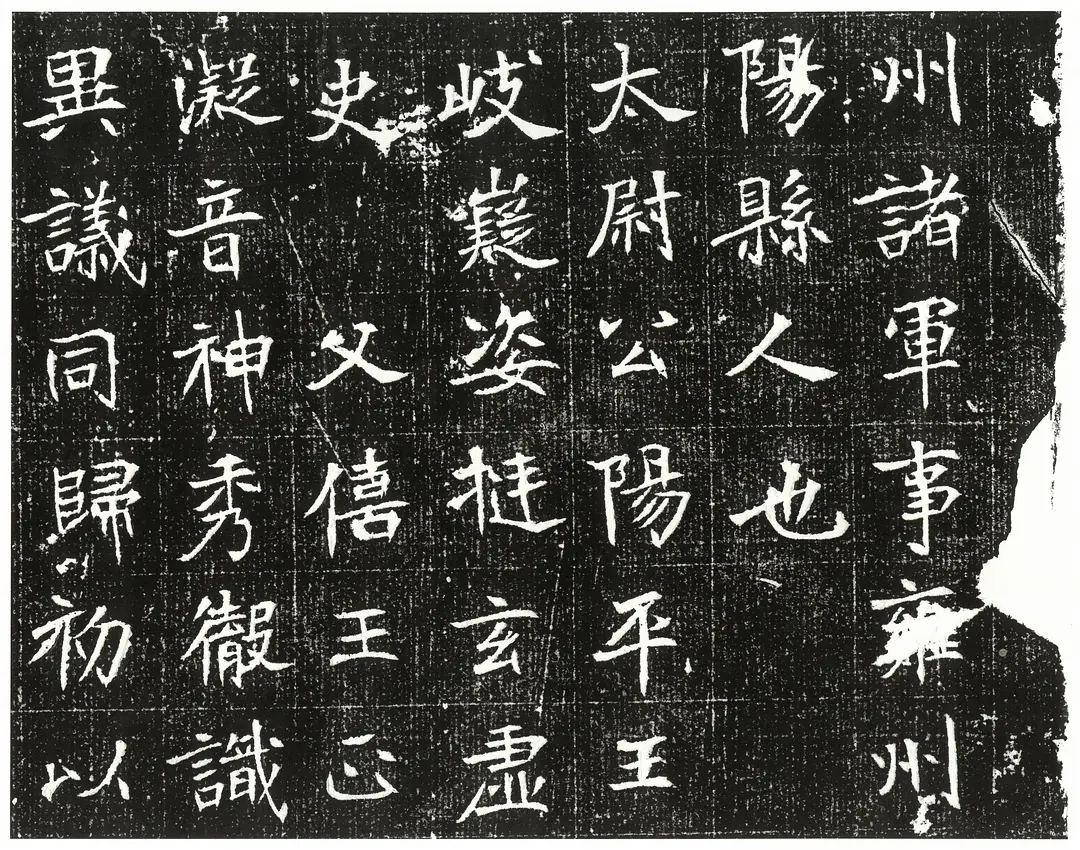 州諸軍事雍州
陽縣人也
太尉公陽平王
岐嶷姿挺玄虛
史 父僖王正
凝音神秀徹識
異議同歸初以